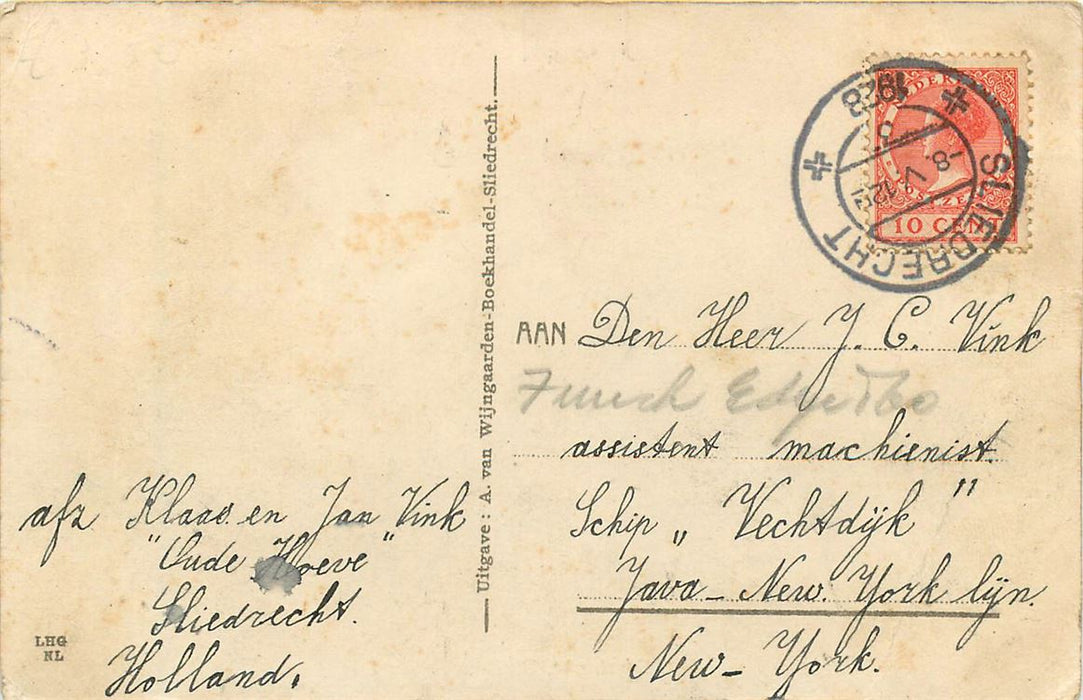 1928
SLIEDRECHT
-8.V.12
10 CENT
Uitgave: A. van Wijngaarden-Boekhandel-Sliedrecht.
AAN Den Heer J. C. Vink
assistent machienist.
Schip „Vechtdijk"
Java-New. York lijn.
New-York.
afz Klaas en Jan Vink
"Oude Hoeve"
Sliedrecht.
Holland.
LHG
NL